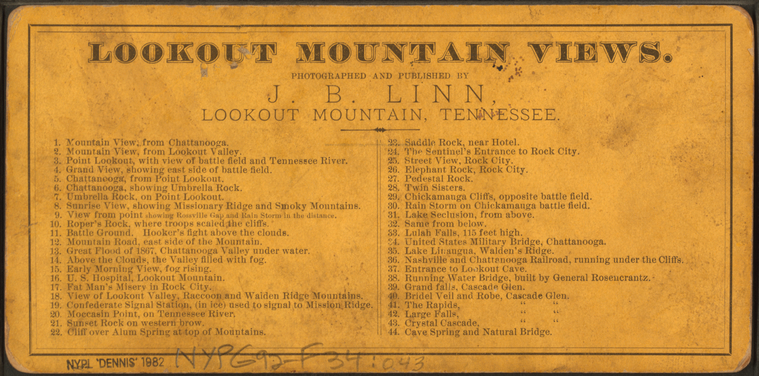 LOOKOUT MOUNTAIN VIEWS.
PHOTOGRAPHED AND PUBLISHED BY
J. B. LINN,
LOOKOUT MOUNTAIN, TENNESSEE.
1. Mountain View, from Chattanooga.
2. Mountain View, from Lookout Valley.
3. Point Lookout, with view of battle field and Tennessee River.
4. Grand View, showing east side of battle field.
5. Chattanooga, from Point Lookout.
6. Chattanooga, showing Umbrella Rock.
7. Umbrella Rock, on Point Lookout.
8. Sunrise View, showing Missionary Ridge and Smoky Mountains.
9. View from point showing Rossville Gap and Rain Storm in the distance.
10. Roper's Rock, where troops scaled the cliffs.
11. Battle Ground. Hooker's fight above the clouds.
12. Mountain Road, east side of the Mountain.
13. Great Flood of 1867, Chattanooga Valley under water.
14. Above the Clouds, the Valley filled with fog.
15. Early Morning View, fog rising.
16. U. S. Hospital, Lookout Mountain.
17. Fat Man's Misery in Rock City.
18. View of Lookout Valley, Raccoon and Walden Ridge Mountains.
19. Confederate Signal Station, (in ice) used to signal to Mission Ridge.
20. Moccasin Point, on Tennessee River.
21. Sunset Rock on western brow.
22. Cliff over Alum Spring at top of Mountains.
23. Saddle Rock, near Hotel.
24. The Sentinel's Entrance to Rock City.
25. Street View, Rock City.
26. Elephant Rock, Rock City.
27. Pedestal Rock.
28. Twin Sisters.
29. Chickamanga Cliffs, opposite battle field.
30. Rain Storm on Chickamanga battle field.
31. Lake Seclusion, from above.
32. Same from below.
33. Lulah Falls, 115 feet high.
34. United States Military Bridge, Chattanooga.
35. Lake Linangua, Walden's Ridge.
36. Nashville and Chattenooga Railroad, running under the Cliffs.
37. Entrance to Lookout Cave.
38. Running Water Bridge, built by General Rosencrantz.
39. Grand falls, Cascade Glen.
40. Bridel Veil and Robe, Cascade Glen.
41. The Rapids, " "
42. Large Falls, " "
43. Crystal Cascade, " "
44. Cave Spring and Natural Bridge.
NYPL "DENNIS" 1982 NYPG92-F34:043